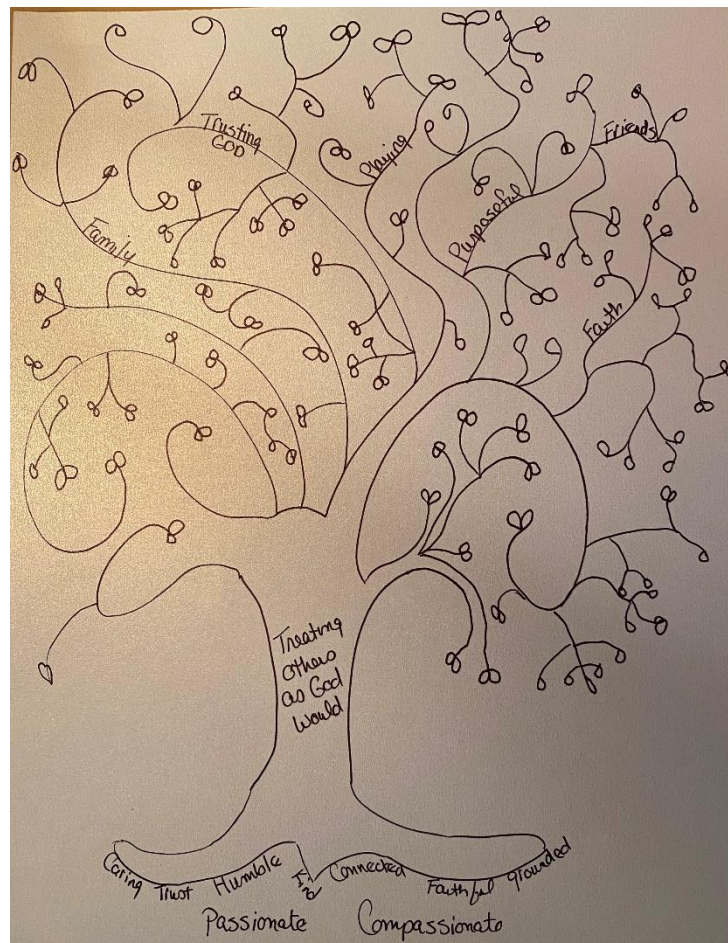 Trusting
GOD
Playing
Friends
Purposeful
Family
Faith
Treating
others
as God
Would
Caring
Trust
Humble
Kind
Connected
Faithful
grounded
Passionate
Compassionato